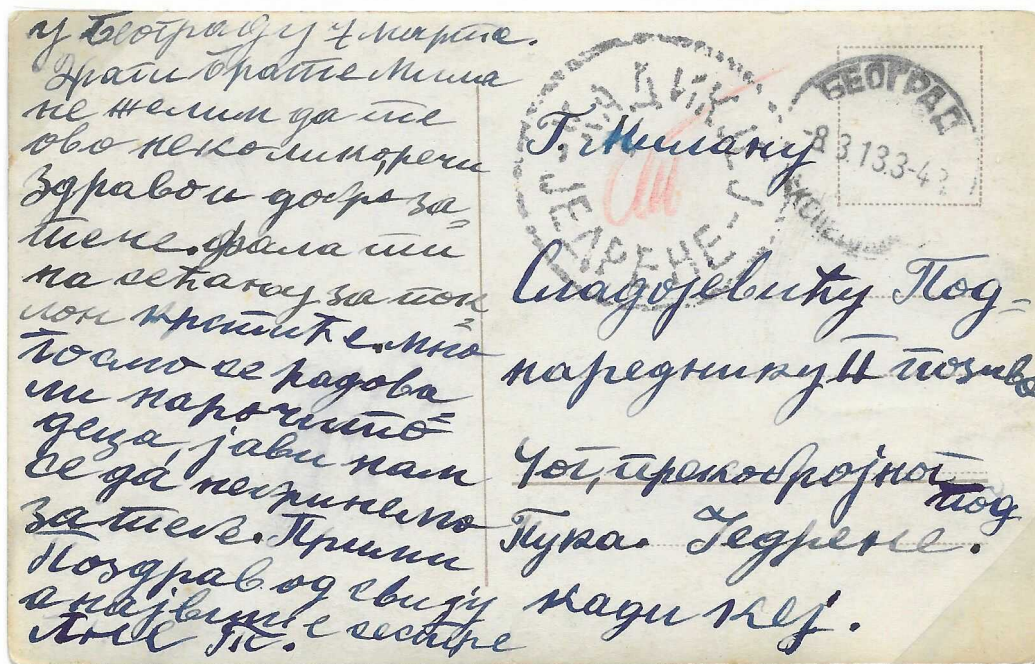 у Београду 7 марта.
Драги брате Мишa
не желим да те
ово неколико речи
здравог и добро за-
тече. фала ти
на сећању за пок
лон крстиће. мно
го смо се радова
ли нарочито
деца, јави нам
се да не бринемо
за тебе. Прими
Поздрав од свију
а највише сестре
БЕОГРАД
8.3.13.3-4
КАДИ КЕЈ
- ЈЕДРЕНЕ -
Г. Милану
Сладојевићу Под-
нареднику II позива
Чог, прекобројног
под
Пука. Једрене.
кади кеј.